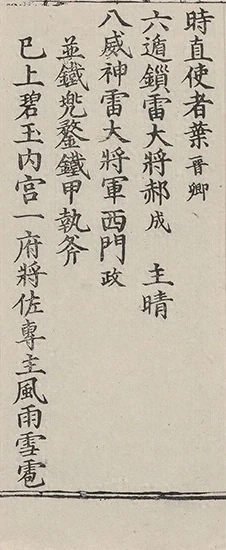 時直使者葉晋卿
六遁鎖雷大將郝成　主晴
八威神雷大將軍西門政
並鐵兠鍪鐵甲執斧
已上碧玉内宫一府將佐專主風雨雪雹